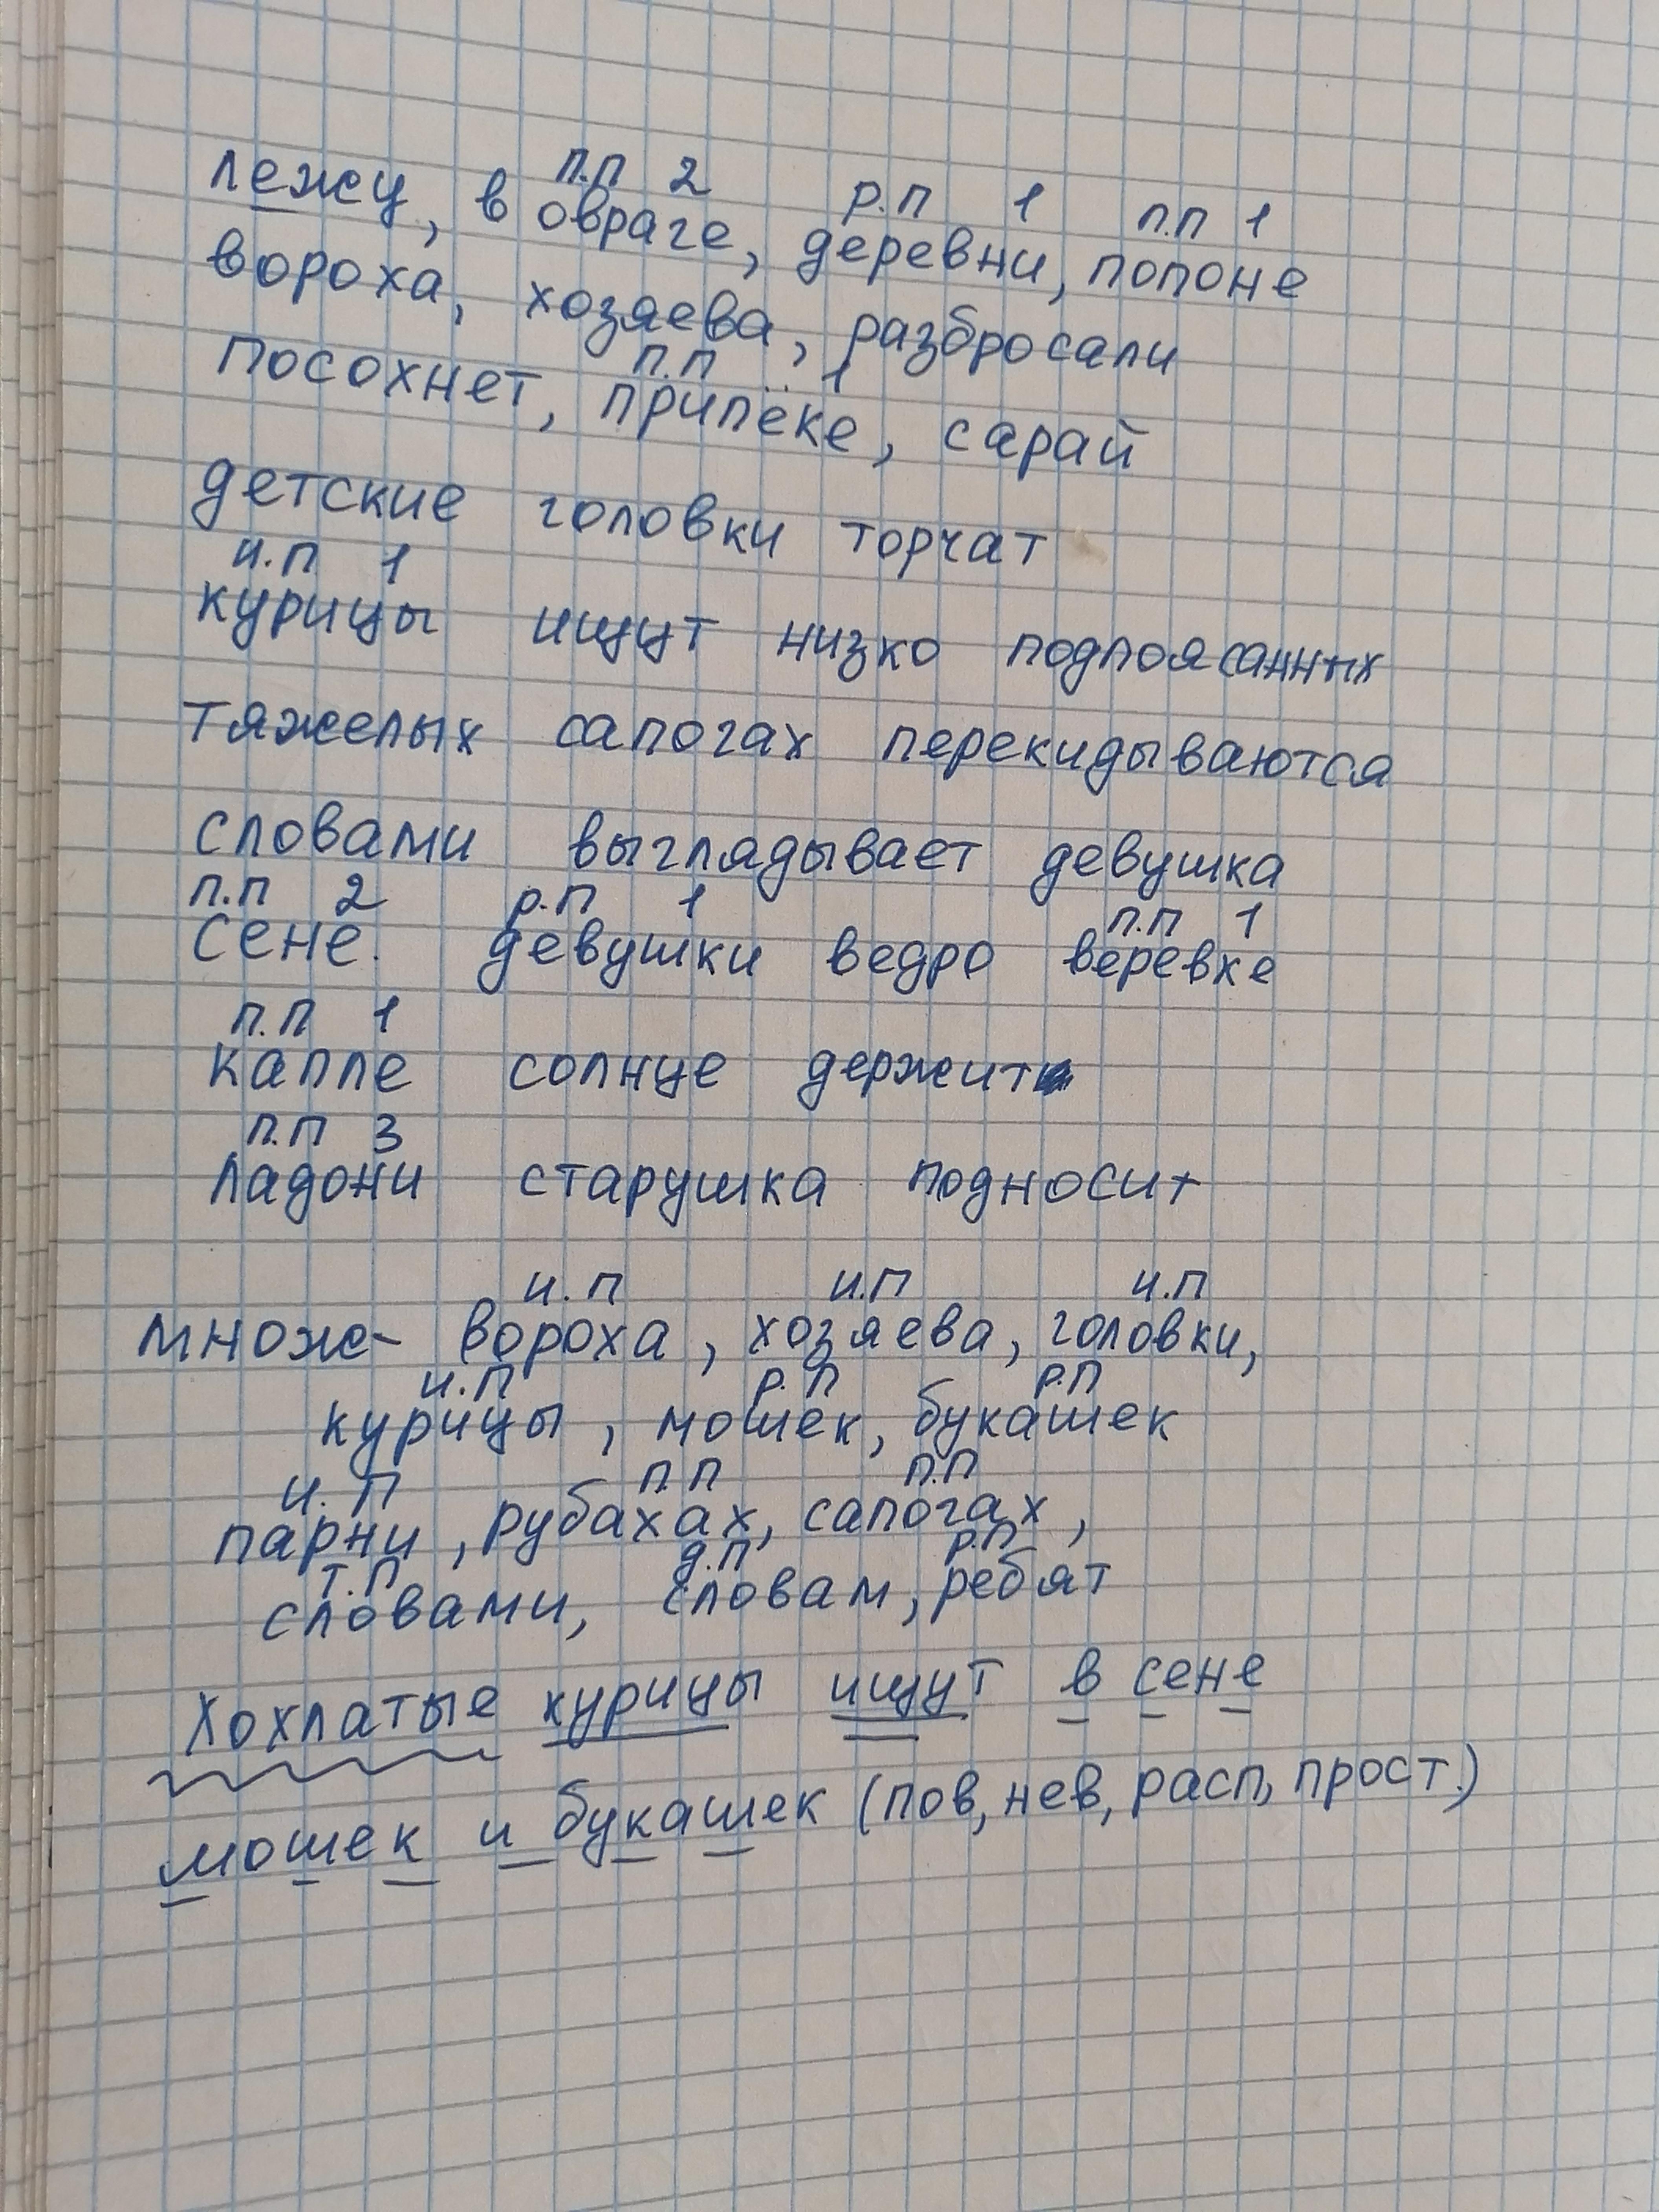 п.п 2 р.п 1 п.п 1
лежу, в овраге, деревни, попоне
вороха, хозяева, разбросали
п.п 1
посохнет, припёке, сарай
детские головки торчат
и.п 1
курицы ищут низко подпоясанных
тяжелых сапогах перекидываются
словами выглядывает девушка
п.п 2 р.п 1 п.п 1
Сене. девушки ведро веревке
п.п 1
капле солнце держит
п.п 3
ладони старушка подносит
и.п и.п и.п
множ- вороха, хозяева, головки,
и.п р.п р.п
курицы, мошек, букашек
и.п п.п п.п
парни, рубахах, сапогах,
т.п д.п р.п
словами, словам, ребят
Хохлатые курицы ищут в сене
мошек и букашек (пов, нев, расп, прост.)